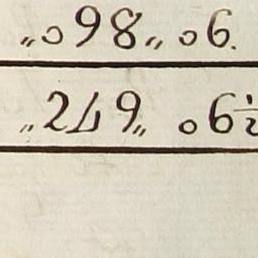 〃098〃06.
〃249〃06½